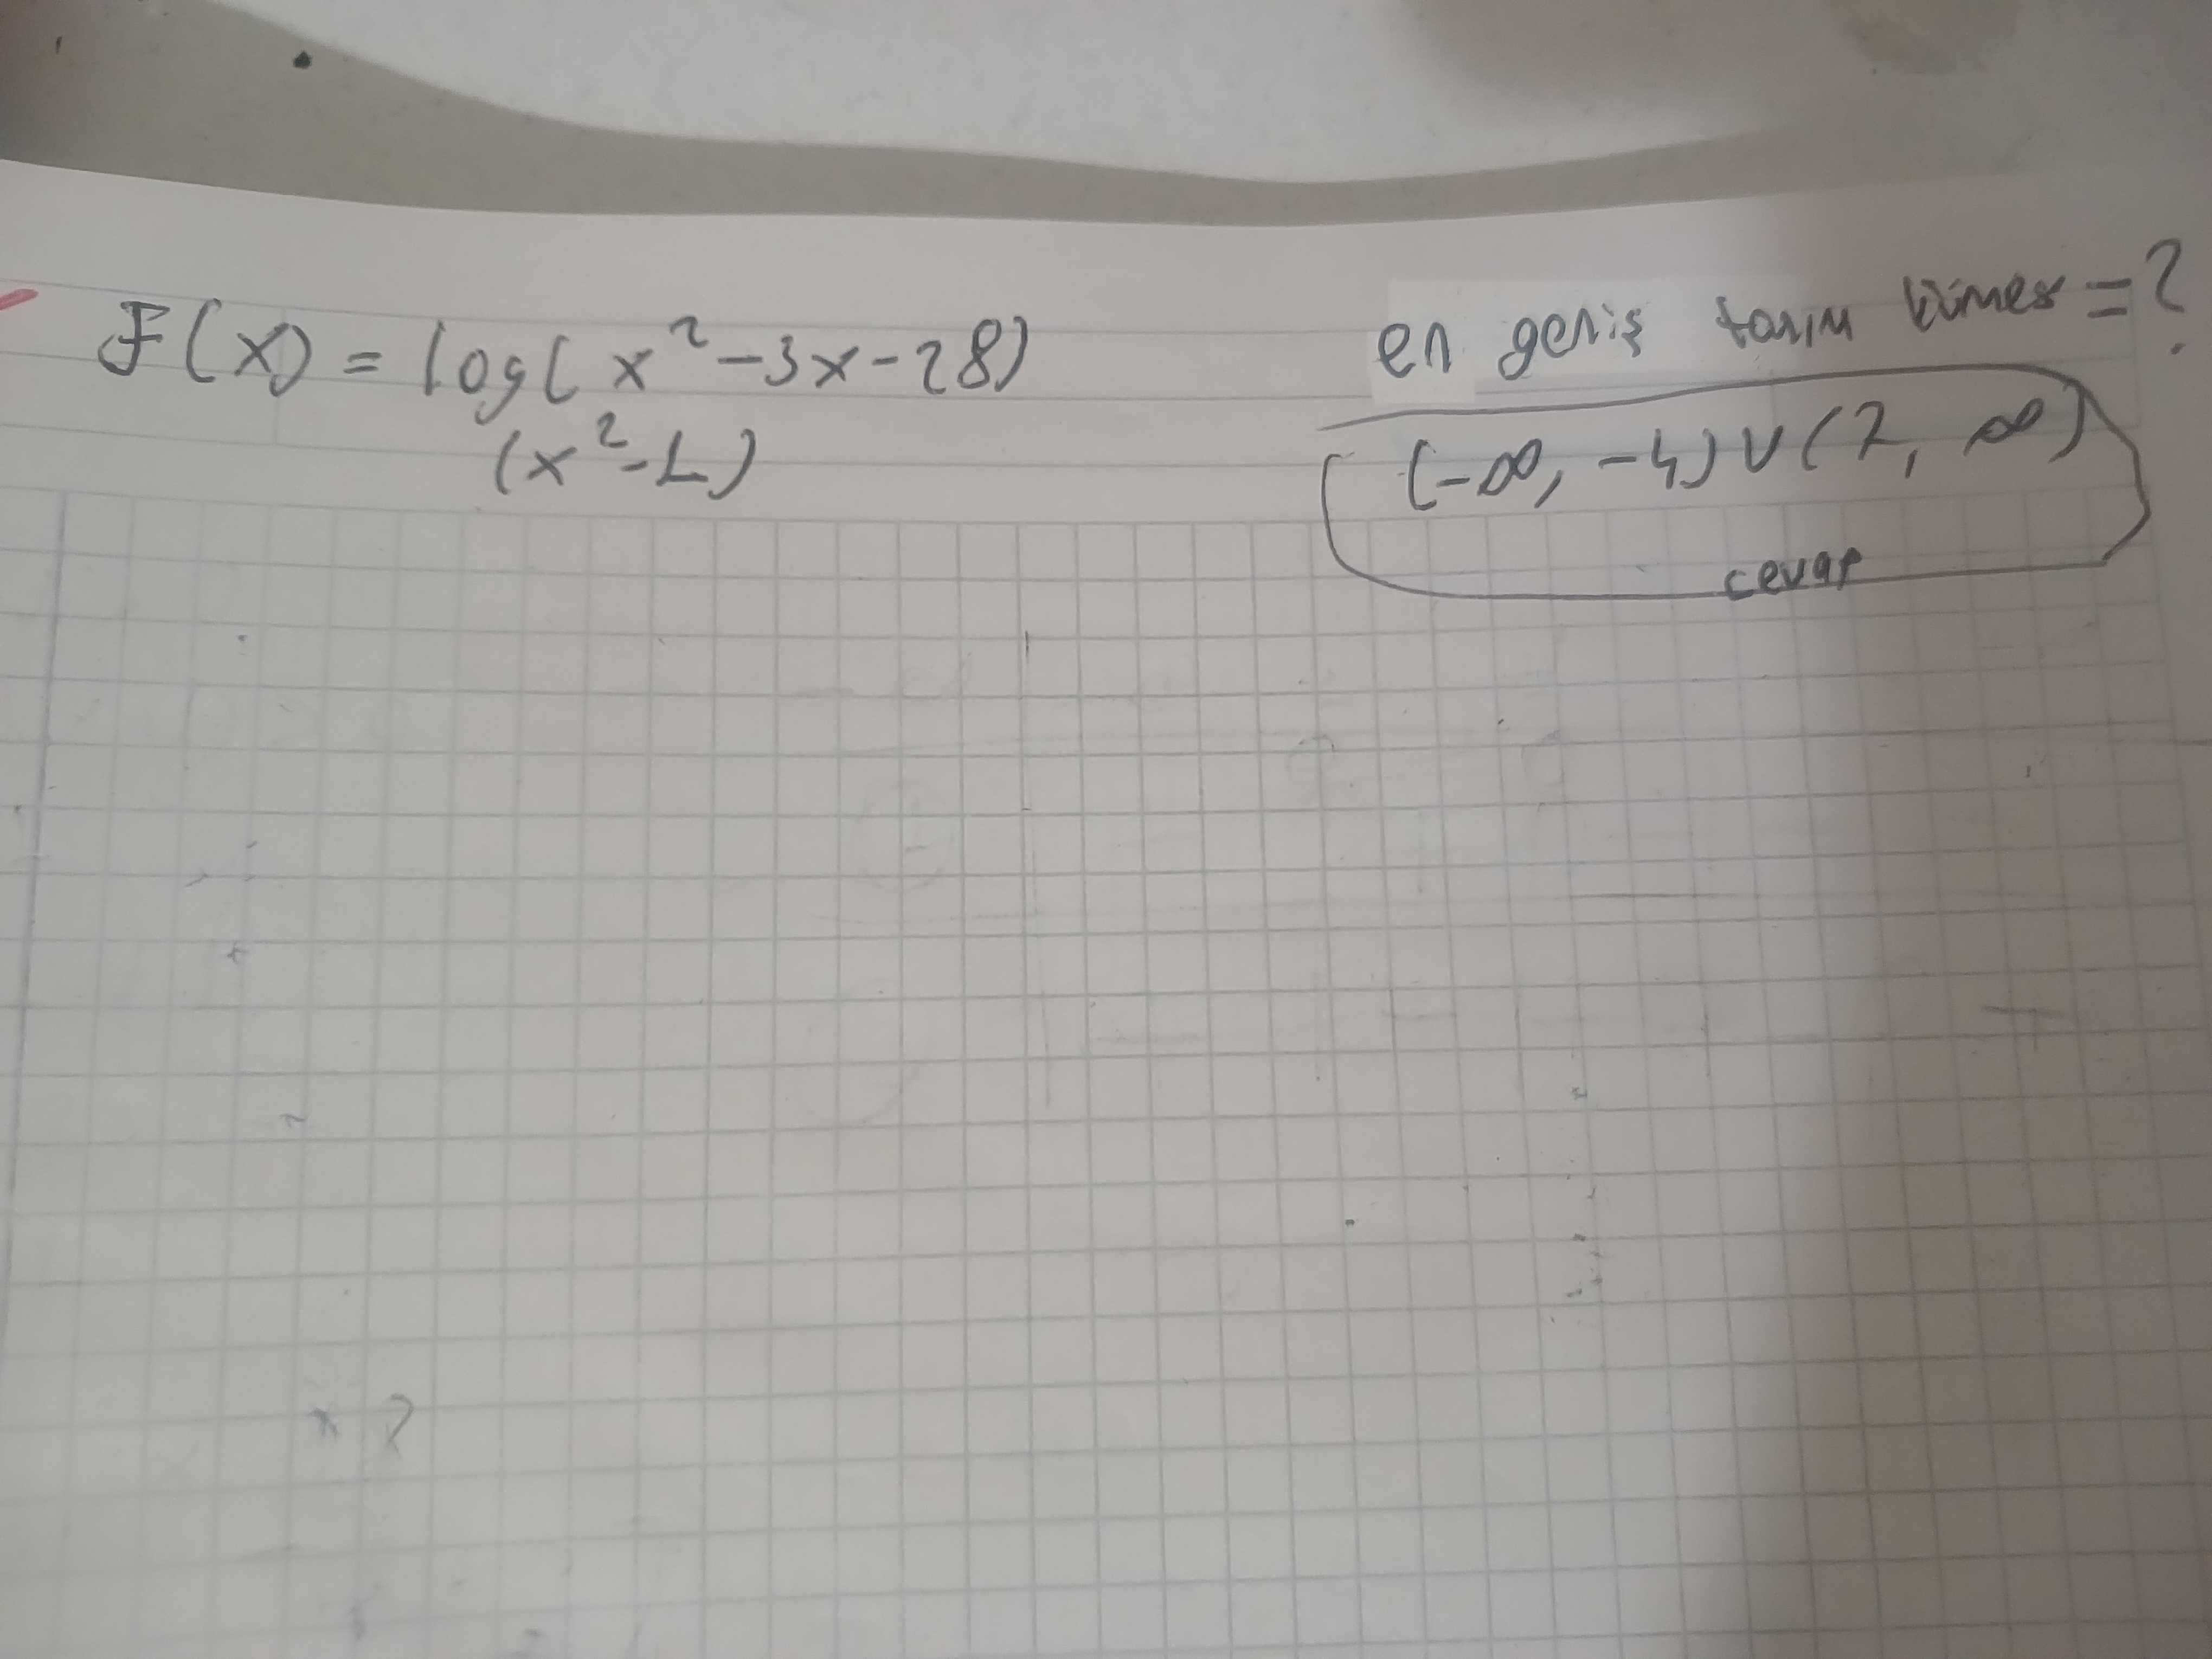 F(x) = log(x²-3x-28)
(x²-1)
en geniş tanım kümesi = ?
(-∞, -4) ∪ (7, ∞)
cevap
x 2